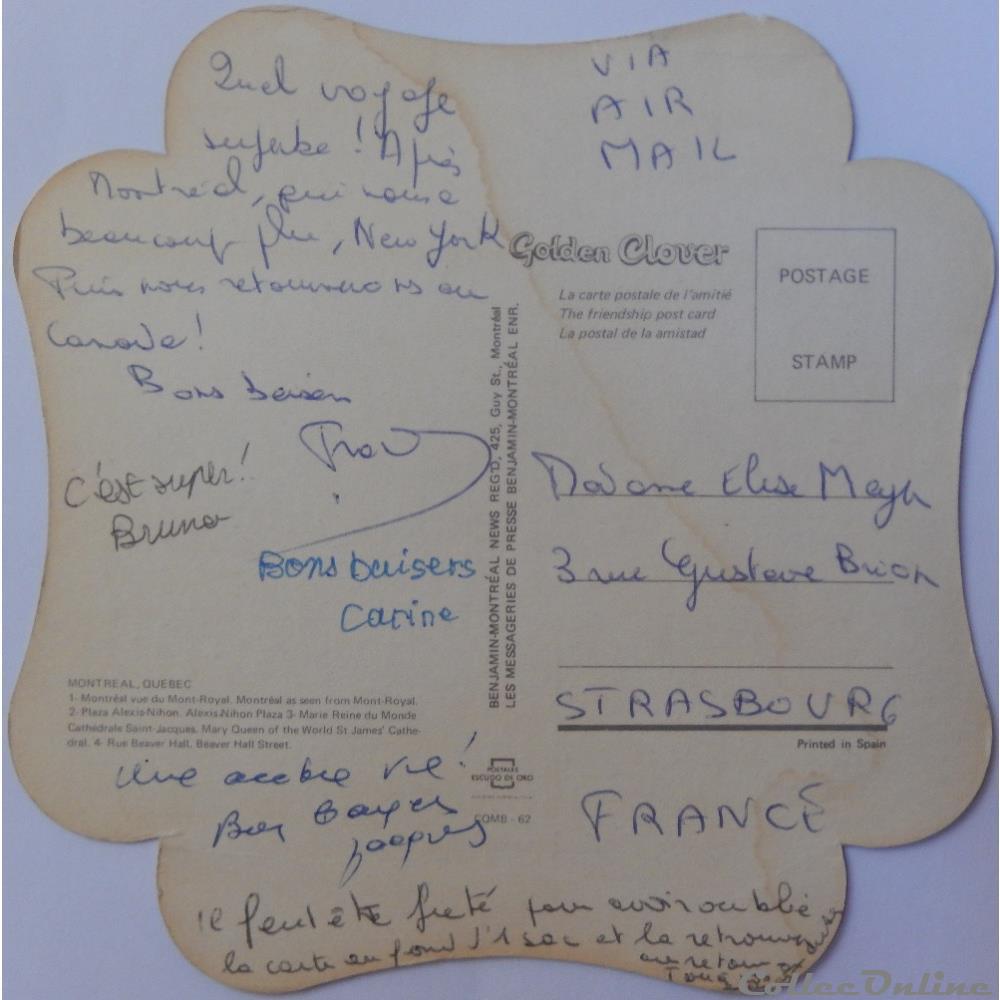 Quel voyage
superbe ! Après
Montréal, qui nous a
beaucoup plu, New York
Puis nous retournerons au
Canada !
Bons baisers
C'est super !
Bruno
Bons baisers
Carine
MONTREAL, QUEBEC
1- Montréal vue du Mont-Royal. Montréal as seen from Mont-Royal.
2- Plaza Alexis-Nihon. Alexis-Nihon Plaza 3- Marie Reine du Monde
Cathédrale Saint-Jacques. Mary Queen of the World St James' Cathe-
dral. 4- Rue Beaver Hall. Beaver Hall Street.
Une vie !
Jacques
Il faut être pour avoir oublié
la carte au fond d'1 sac et la retrouver
au retour
BENJAMIN-MONTRÉAL NEWS REG'D, 425, Guy St., Montréal
LES MESSAGERIES DE PRESSE BENJAMIN-MONTRÉAL ENR.
POSTALES
ESCUDO DE ORO
COMB - 62
VIA
AIR
MAIL
Golden Clover
La carte postale de l'amitié
The friendship post card
La postal de la amistad
POSTAGE
STAMP
Madame Elise
3 rue Gustave Brion
STRASBOURG
Printed in Spain
FRANCE
CollecOnline